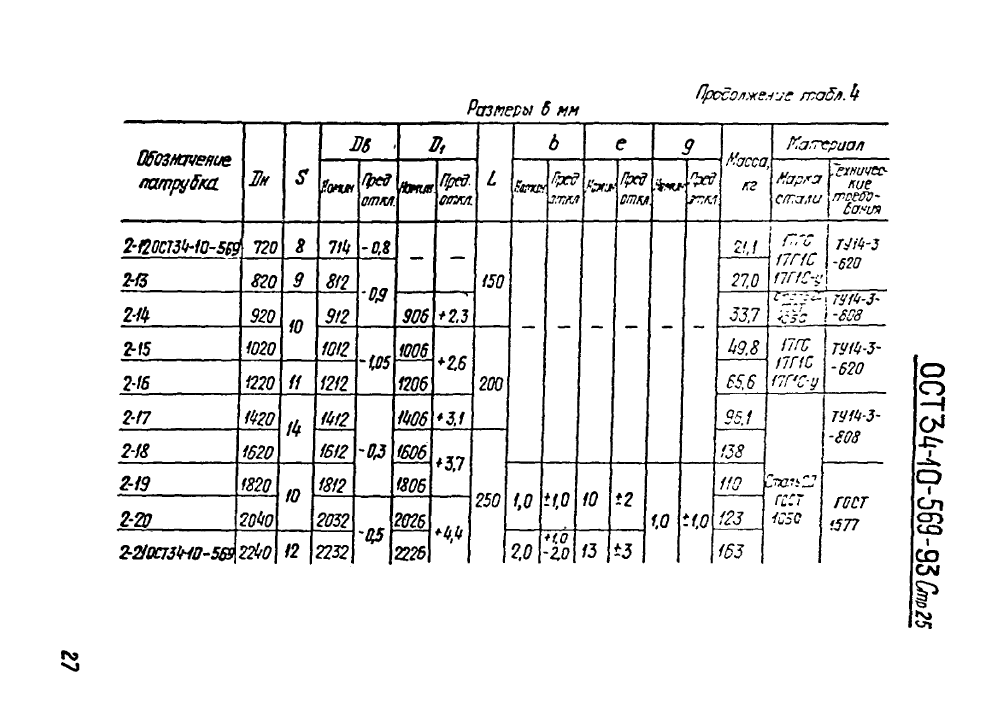 Продолжение табл. 4
Размеры в мм
Обозначение патрубка Dн S Dв D1 L b e g Масса, кг Материал
Номин. Пред. откл. Номин. Пред. откл. Номин. Пред. откл. Номин. Пред. откл. Номин. Пред. откл. Марка стали Технические требования
2-12 ОСТ34-10-569 720 8 714 -0,8 — — 150 — — — — — — 21,1 17ГС 17Г1С 17Г1С-у ТУ14-3-620
2-13 820 9 812 -0,9 27,0
2-14 920 10 912 906 +2,3 33,7 ТУ14-3-808
2-15 1020 1012 -1,05 1006 +2,6 200 49,8 17ГС 17Г1С 17Г1С-у ТУ14-3-620
2-16 1220 11 1212 1206 65,6
2-17 1420 14 1412 -0,3 1406 +3,1 Сталь20 ГОСТ 1050 ТУ14-3-808
2-18 1620 1612 1606 +3,7 250 138
2-19 1820 10 1812 1806 1,0 ±1,0 10 ±2 1,0 ±1,0 110 ГОСТ 1577
2-20 2040 2032 -0,5 2026 +4,4 123
2-21 ОСТ34-10-569 2240 12 2232 2226 2,0 +1,0 -2,0 13 ±3 163
ОСТ 34-10-569-93 Стр. 25
27